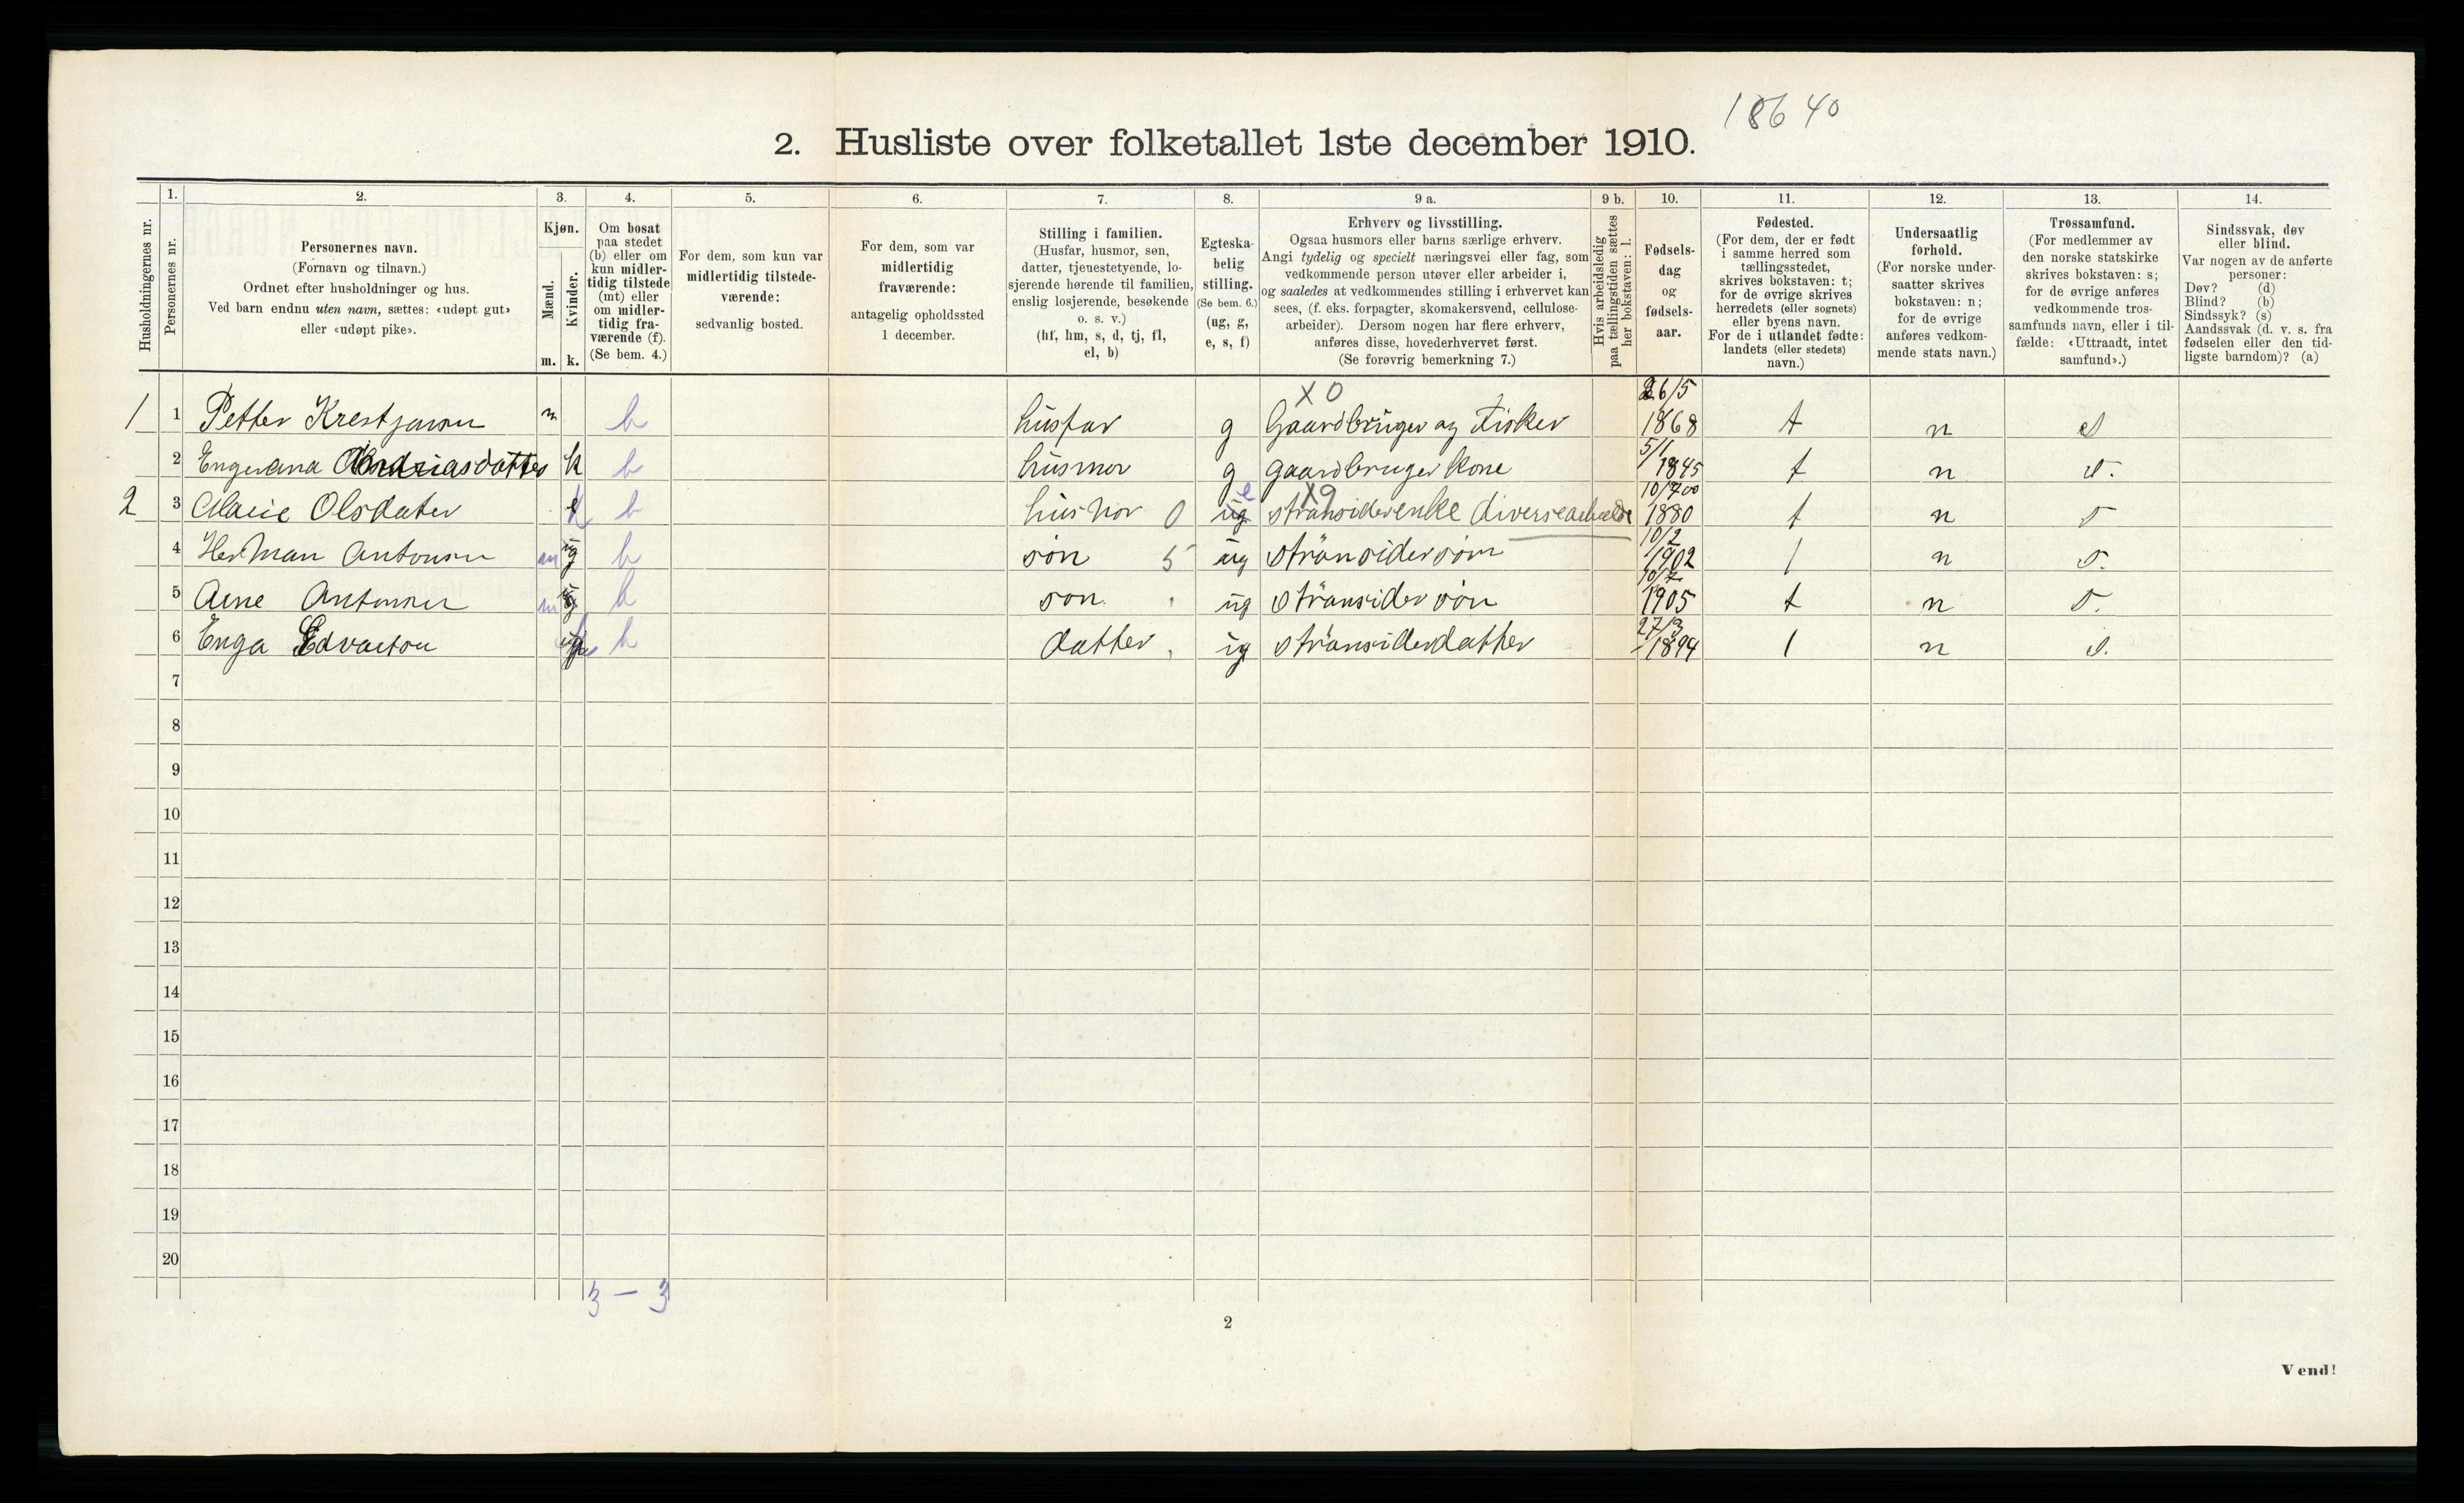 18640
2. Husliste over folketallet 1ste december 1910.
1. 2. 3. 4. 5. 6. 7. 8. 9 a. 9 b. 10. 11. 12. 13. 14.
Husholdningernes nr.
Personernes nr.
Personernes navn.
(Fornavn og tilnavn.)
Ordnet efter husholdninger og hus.
Ved barn endnu uten navn, sættes: «udøpt gut»
eller «udøpt pike».
Kjøn.
Mænd.
Kvinder.
m. k.
Om bosat
paa stedet
(b) eller om
kun midler-
tidig tilstede
(mt) eller
om midler-
tidig fra-
værende (f).
(Se bem. 4.)
For dem, som kun var
midlertidig tilstede-
værende:
sedvanlig bosted.
For dem, som var
midlertidig
fraværende:
antagelig opholdssted
1 december.
Stilling i familien.
(Husfar, husmor, søn,
datter, tjenestetyende, lo-
sjerende hørende til familien,
enslig losjerende, besøkende
o. s. v.)
(hf, hm, s, d, tj, fl,
el, b)
Egteska-
belig
stilling.
(Se bem. 6.)
(ug, g,
e, s, f)
Erhverv og livsstilling.
Ogsaa husmors eller barns særlige erhverv.
Angi tydelig og specielt næringsvei eller fag, som
vedkommende person utøver eller arbeider i,
og saaledes at vedkommendes stilling i erhvervet kan
sees, (f. eks. forpagter, skomakersvend, cellulose-
arbeider). Dersom nogen har flere erhverv,
anføres disse, hovederhvervet først.
(Se forøvrig bemerkning 7.)
Hvis arbeidsledig
paa tællingstiden sættes
her bokstaven: l.
Fødsels-
dag
og
fødsels-
aar.
Fødested.
(For dem, der er født
i samme herred som
tællingsstedet,
skrives bokstaven: t;
for de øvrige skrives
herredets (eller sognets)
eller byens navn.
For de i utlandet fødte:
landets (eller stedets)
navn.)
Undersaatlig
forhold.
(For norske under-
saatter skrives
bokstaven: n;
for de øvrige
anføres vedkom-
mende stats navn.)
Trossamfund.
(For medlemmer av
den norske statskirke
skrives bokstaven: s;
for de øvrige anføres
vedkommende tros-
samfunds navn, eller i til-
fælde: «Uttraadt, intet
samfund».)
Sindssvak, døv
eller blind.
Var nogen av de anførte
personer:
Døv? (d)
Blind? (b)
Sindssyk? (s)
Aandssvak (d. v. s. fra
fødselen eller den tid-
ligste barndom)? (a)
X 0 26/5
1 1 Petter Krestjansen m b husfar g Gaardbruger og Fisker 1868 t n s
5/1
2 Engerana Andriasdatter k b husmor g gaardbruger kone 1845 t n s.
e X9
2 3 Marie Olsdater k b husmor 0 ug stransiderenke 1880 t n s
10/2
4 Herman Antonsen m b søn 5 ug stransidersøn 1902 n s.
10/7
5 Arne Antonsen m b søn ug stransidersøn 1905 t n s.
27/3
6 Enga b datter ug stransiderdatter 1894 n s.
7
8
9
10
11
12
13
14
15
16
17
18
19
20
3 — 3
2
Vend!